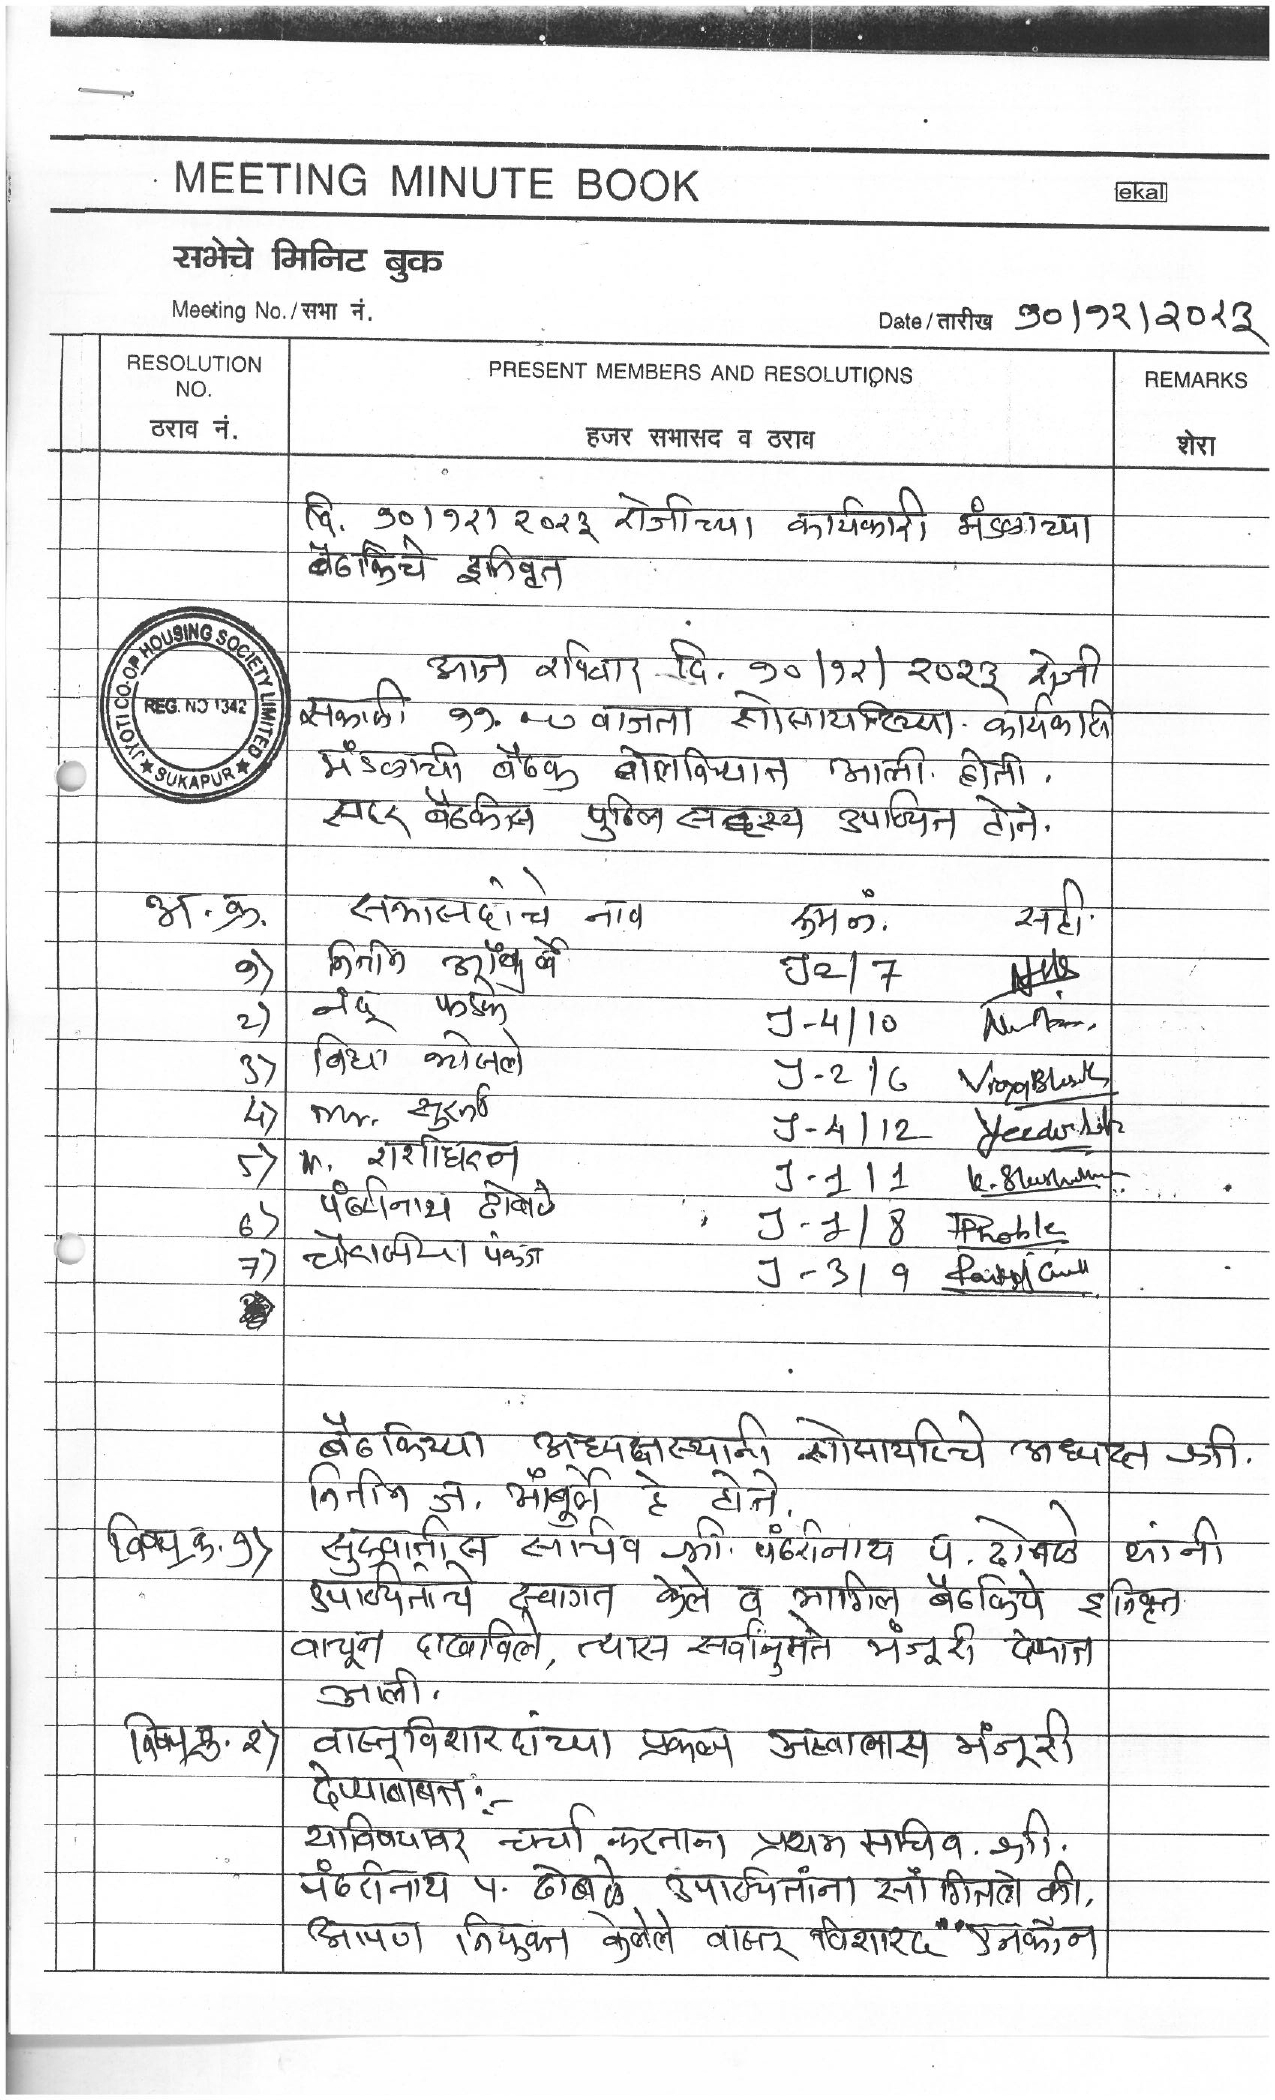 MEETING MINUTE BOOK
ekal
सभेचे मिनिट बुक
Meeting No. / सभा नं.
Date / तारीख १०/१२/२०२३
RESOLUTION NO.
ठराव नं.
PRESENT MEMBERS AND RESOLUTIONS
हजर सभासद व ठराव
REMARKS
शेरा
दि. १०/१२/२०२३ रोजीच्या कार्यकारी मंडळाच्या
बैठकिचे इतिवृत
JYOTI CO-OP HOUSING SOCIETY LIMITED
REG. NO 1342
★ SUKAPUR ★
आज रविवार दि. १०/१२/२०२३ रोजी
सकाळी ११. वाजता सोसायटिच्या कार्यकारी
मंडळाची बैठक बोलविण्यात आली होती.
सदर बैठकीस पुढिल सदस्य उपस्थित होते.
अ. क्र. सभासदांचे नाव रुम नं. सही
१) नितीन J2/7
2) नंदू फडके J-4/10
3) विद्या भोसले J-2/6
4) Mr. J-4/12
5) K. शशीधरन J-1/1 K.
6) पंढरीनाथ ढोबळे J-1/8 PDhoble
7) चौरासीया पंकज J-3/9
बैठकिच्या अध्यक्षस्थानी सोसायटिचे अध्यक्ष श्री.
नितीन ज. हे होते.
विषय क्र. १) सुरुवातीस सचिव श्री. पंढरीनाथ प. ढोबळे यांनी
उपस्थितांचे स्वागत केले व मागिल बैठकिचे इतिवृत्त
वाचून दाखविले, त्यास सर्वानुमते मंजूरी देण्यात
आली.
विषय क्र. २) वास्तूविशारदांच्या प्रकल्प अहवालास मंजूरी
देण्याबाबत :-
याविषयावर चर्चा करताना प्रथम सचिव श्री.
पंढरीनाथ प. ढोबळे उपस्थितांना सांगितले की,
आपण नियुक्त केलेले वास्तू विशारद